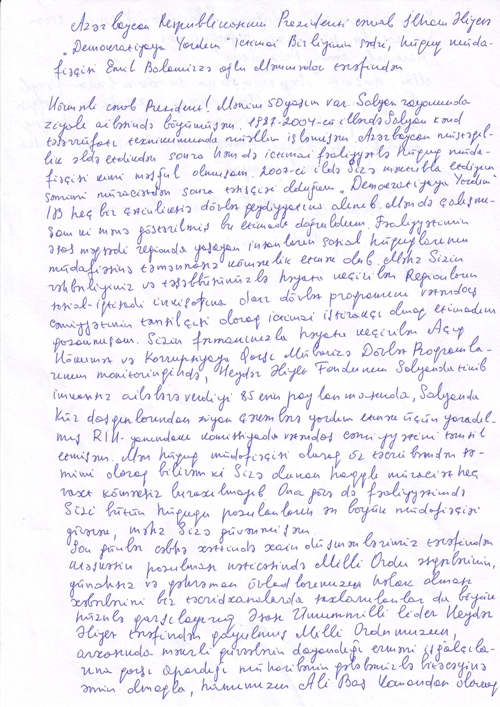 Azərbaycan Respublikasının Prezidenti cənab İlham Əliyevə
"Demokratiyaya Yardım" ictimai Birliyinin sədri, hüquq müda-
fiəçisi Emil Balamirzə oğlu Məmmədov tərəfindən
Hörmətli cənab Prezident! Mənim 50 yaşım var. Salyan rayonunda
ziyalı ailəsində böyümüşəm. 1987-2004-cü illərdə Salyan kənd
təsərrüfatı texnikumunda müəllim işləmişəm. Azərbaycan müstəqil-
lik əldə etdikdən sonra həm də ictimai fəaliyyətlə hüquq müda-
fiəçisi kimi məşğul olmuşam. 2007-ci ildə Sizə məktubla etdiyim
səmimi müraciətdən sonra təsisçisi olduğum "Demokratiyaya Yardım"
İB heç bir çətinliksiz dövlət qeydiyyatına alınıb. Mən də çalışmı-
şam ki mənə göstərilmiş bu etimadı doğruldum. Fəaliyyətimin
əsas məqsədi regionda yaşayan insanların sosial hüquqlarının
müdafiəsinə təmənnasız köməklik etmək olub. Məhz Sizin
rəhbərliyiniz və təşəbbüsünüzlə həyata keçirilən Regionların
sosial-iqtisadi inkişafına dair dövlət proqramının vətəndaş
cəmiyyətinin təmsilçisi olaraq ictimai iştirakçı olmaq etimadını
qazanmışam. Sizin fərmanınızla həyata keçirilən Açıq
Hökumət və Korrupsiyaya Qarşı Mübarizə Dövlət Proqramla-
rının monitorinqində, Heydər Əliyev Fondunun Salyanda tikib
imkansız ailələrə verdiyi 85 evin paylanmasında, Salyanda
Kür daşqınlarından ziyan çəkənlərə yardım etmək üçün yaradıl-
mış RİH-yanındakı komissiyada vətəndaş cəmiyyətini təmsil
etmişəm. Mən hüquq müdafiəçisi olaraq öz təcrübəmdən sə-
mimi olaraq bilirəm ki Sizə olunan haqqlı müraciət heç
vaxt köməksiz buraxılmayıb. Ona görə də fəaliyyətimdə
Sizi bütün hüququ pozulanların ən böyük müdafiəçisi
görərək, məhz Sizə güvənmişəm.
Son günlər cəbhə xəttində xain düşmənlərimiz tərəfindən
atəşkəsin pozulması nəticəsində Milli Ordu əsgərlərinin,
günahsız və qəhrəman övladlarımızın həlak olması
xəbərlərini biz təcridxanalarda saxlanılanlar da böyük
hüznlə qarşılayırıq. Əsası Ümummilli lider Heydər
Əliyev tərəfindən qoyulmuş Milli Ordumuzun,
arxasında məhz güvənlərin dayandığı erməni işğalçıla-
rına qarşı apardığı müharibənin qələbəmizlə bitəcəyinə
əmin olmaqla, hamımızın Ali Baş Komandan olaraq